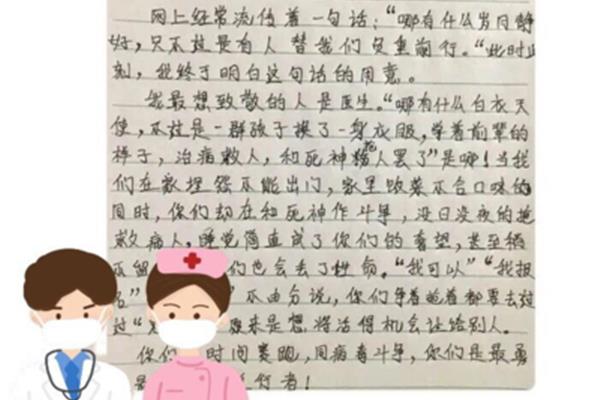 网上经常流传着一句话：“哪有什么岁月静
好，只不过是有人替我们负重前行。”此时此
刻，我终于明白这句话的用意。
我最想致敬的人是医生。“哪有什么白衣天
使，不过是一群孩子换了一身衣服，学着前辈的
样子，治病救人，和死神抢人罢了”是哪！当我
们在家埋怨不能出门，家里饭菜不合口味的
同时，你们却在和死神作斗争，没日没夜的拖
救病人。睡觉简直成了你们的奢望，甚至稍
不留 们也会丢了性命。“我可以”“我报
名” 不由分说，你们争着抢着都要去过
过“ 原来是想将活得机会让给别人。
你们 时间赛跑，同病毒斗争，你们是最勇
行者！